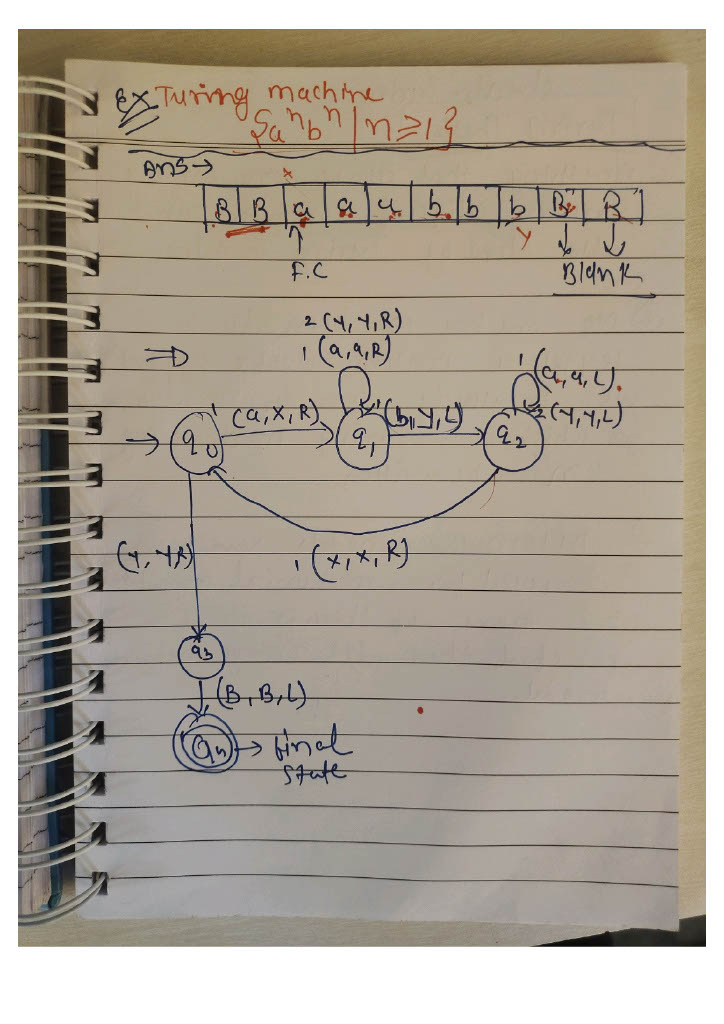 Ex Turing machine
{aⁿbⁿ | n ≥ 1}
Ans →
x
B B a a a b b b B B
y
F.C
Blank
2 (Y, Y, R)
1 (a, a, R)
1 (a, a, L)
(a, X, R)
(b, y, L)
2 (Y, Y, L)
q₀ q₁ q₂
(Y, Y, R)
1 (x, x, R)
q₃
(B, B, L)
→ final
state